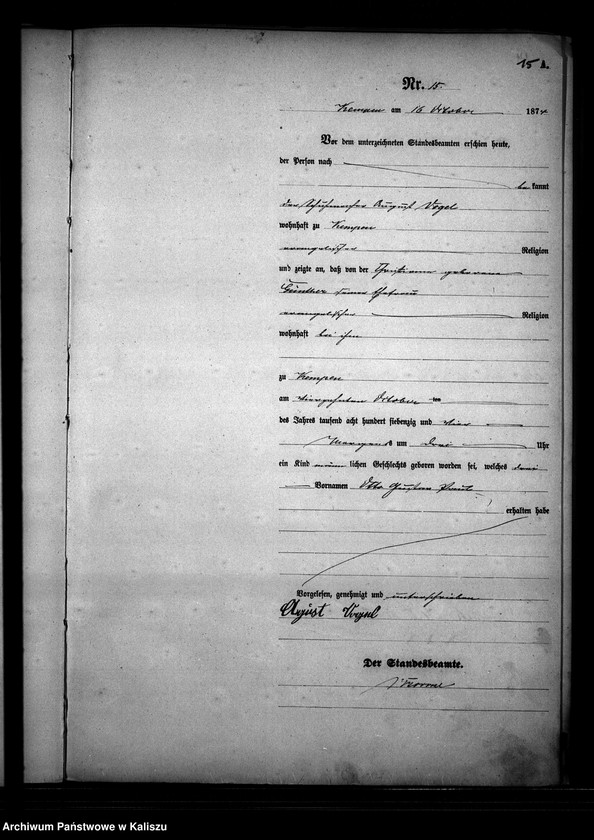 15
Nr. 15.
Kempen am 16 October 1874
Vor dem unterzeichneten Standesbeamten erschien heute,
der Person nach
bekannt
der Schuhmacher August Vogel
wohnhaft zu Kempen
evangelischer Religion
und zeigte an, daß von der Christiane geborene
Günther seiner Ehefrau
evangelischer Religion
wohnhaft bei ihm
zu Kempen
am vierzehnten October ten
des Jahres tausend acht hundert siebenzig und vier
Morgens um drei Uhr
ein Kind männlichen Geschlechts geboren worden sei, welches drei
Vornamen Otto Gustav Paul
erhalten habe
Vorgelesen, genehmigt und unterschrieben
August Vogel
Der Standesbeamte.
Archiwum Państwowe w Kaliszu